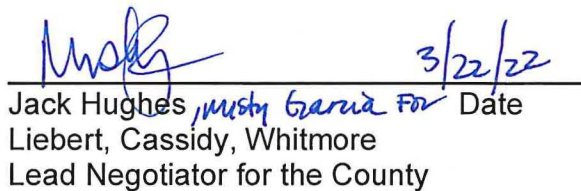 Misty
3/22/22
Jack Hughes, Misty Garcia For Date
Liebert, Cassidy, Whitmore
Lead Negotiator for the County